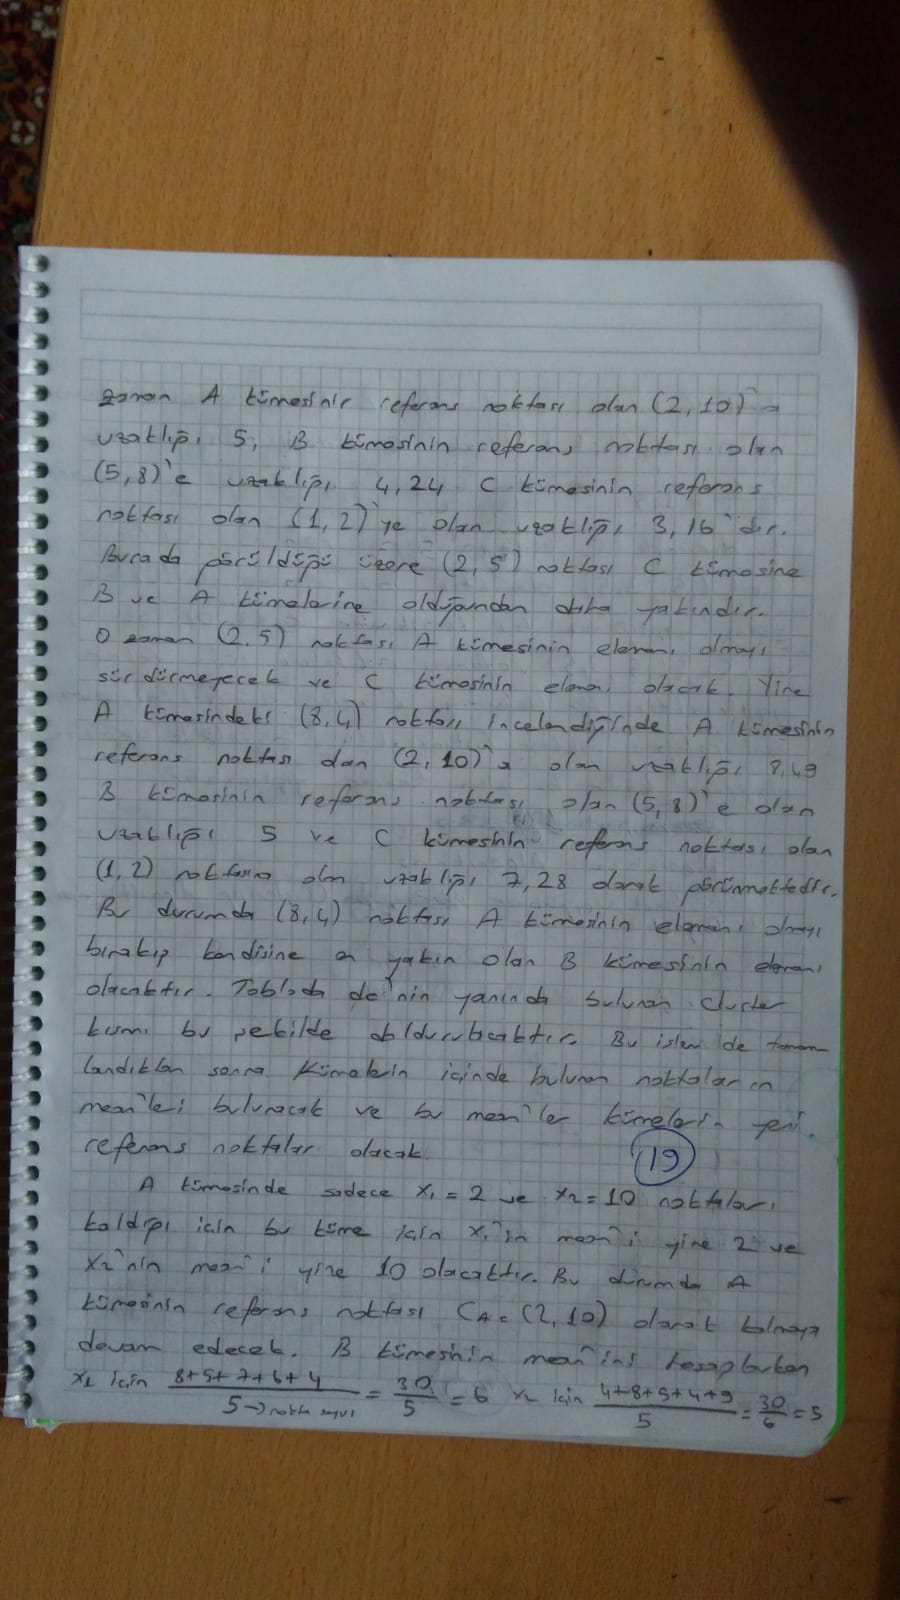 zaman A kümesinin referans noktası olan (2,10)'a
uzaklığı 5, B kümesinin referans noktası olan
(5,8)'e uzaklığı 4,24 C kümesinin referans
noktası olan (1,2)'ye olan uzaklığı 3,16'dır.
Burada görüldüğü üzere (2,5) noktası C kümesine
B ve A kümelerine olduğundan daha yakındır.
O zaman (2,5) noktası A kümesinin elemanı olmayı
sürdürmeyecek ve C kümesinin elemanı olacak. Yine
A kümesindeki (8,4) noktası incelendiğinde A kümesinin
referans noktası olan (2,10)'a olan uzaklığı 8,49
B kümesinin referans noktası olan (5,8)'e olan
uzaklığı 5 ve C kümesinin referans noktası olan
(1,2) noktasına olan uzaklığı 7,28 olarak görünmektedir.
Bu durumda (8,4) noktası A kümesinin elemanı olmayı
bırakıp kendisine en yakın olan B kümesinin elemanı
olacaktır. Tabloda dc'nin yanında bulunan cluster
kısmı bu şekilde doldurulacaktır. Bu işlem de tamam-
landıktan sonra kümelerin içinde bulunan noktaların
mean'leri bulunacak ve bu mean'ler kümelerin yeni
referans noktaları olacak.
19
A kümesinde sadece x₁ = 2 ve x₂ = 10 noktaları
kaldığı için bu küme için x₁'in mean'i yine 2 ve
x₂'nin mean'i yine 10 olacaktır. Bu durumda A
kümesinin referans noktası CA = (2,10) olarak kalmaya
devam edecek. B kümesinin mean'ini hesaplarken
x₁ için 8+5+7+6+4 / 5 → nokta sayısı = 30/5 = 6 x₂ için 4+8+5+4+9 / 5 = 30/6 = 5